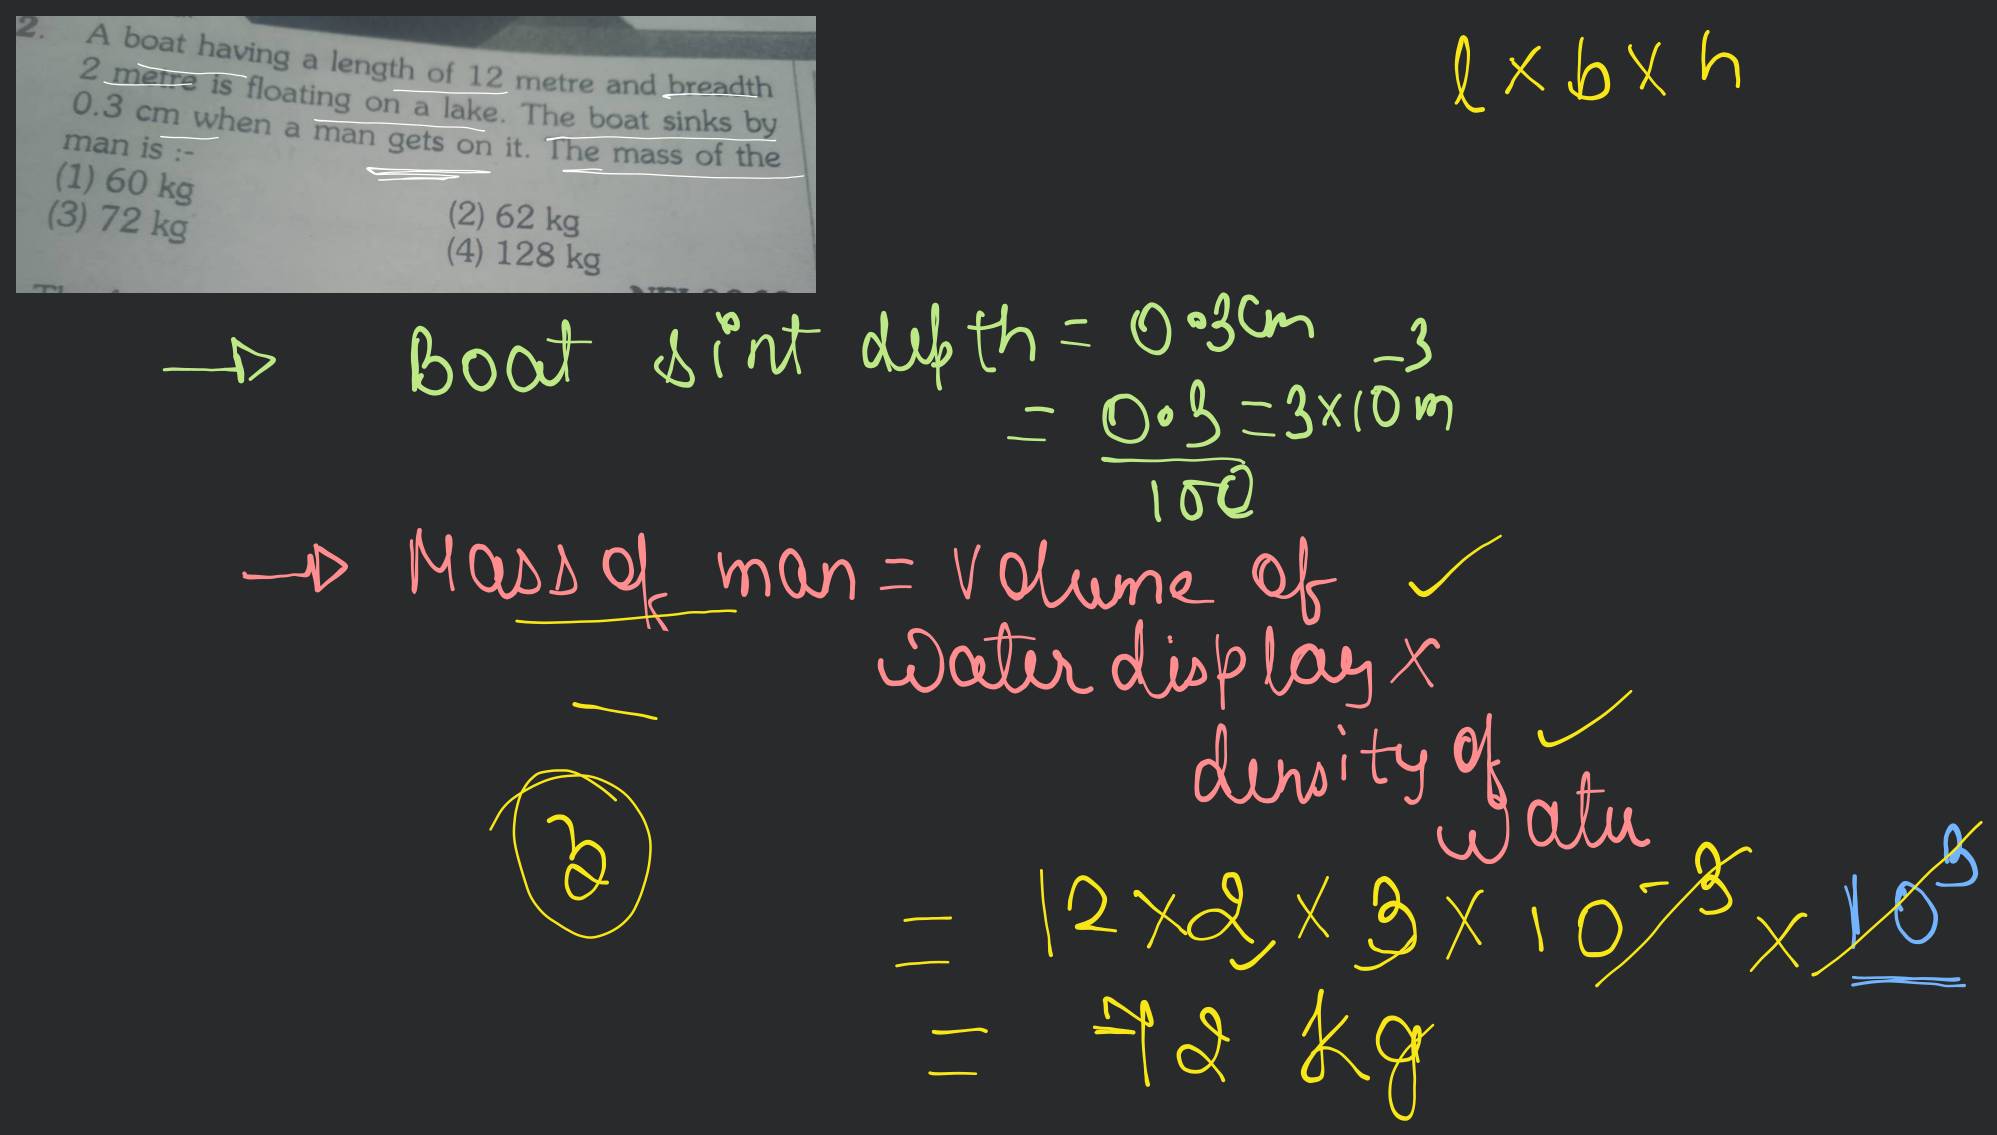 2. A boat having a length of 12 metre and breadth
2 metre is floating on a lake. The boat sinks by
0.3 cm when a man gets on it. The mass of the
man is :-
(1) 60 kg
(2) 62 kg
(3) 72 kg
(4) 128 kg
l × b × h
→ Boat sint depth = 0.3 cm
= 0.3/100 = 3×10⁻³ m
→ Mass of man = volume of
water display ×
density of
water
= 12 × 2 × 3 × 10⁻³ × 10³
= 72 kg